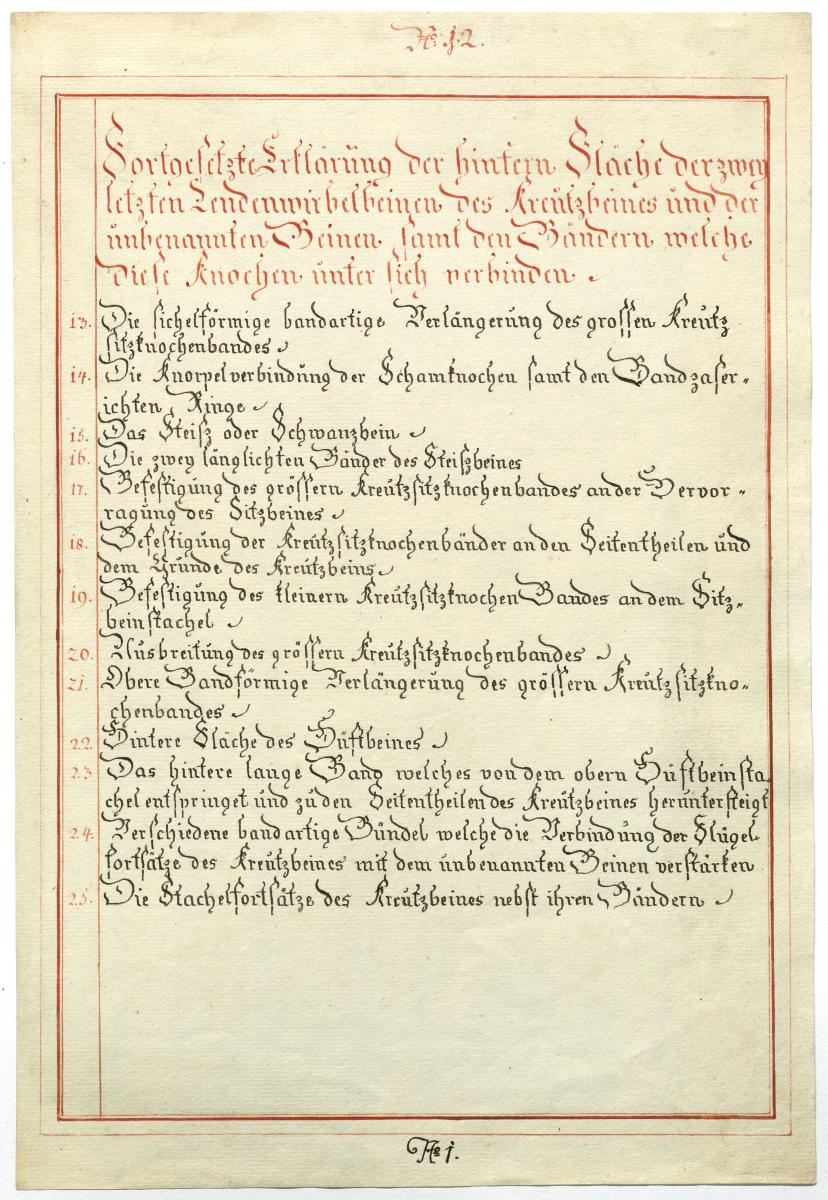 No. j.2.
Fortgesetzte Erklärung der hintern Fläche der zwey
letzten Lendenwirbelbeinen des Kreutzbeines und der
unbenannten Beinen, samt den Bändern welche
diese Knochen unter sich verbinden.
13. Die sichelförmige bandartige Verlängerung des grossen Kreutz
sitzknochenbandes
14. Die Knorpelverbindung der Schamknochen samt den Bandzaser-
ichten Ringe
15. Das Steisz oder Schwanzbein
16. Die zwey länglichten Bänder des Steiszbeines
17. Befestigung des grössern Kreutzsitzknochenbandes an der Vervor-
ragung des Sitzbeines
18. Befestigung der Kreutzsitzknochenbänder an den Seitentheilen und
dem Grunde des Kreutzbeins
19. Befestigung des kleinern Kreutzsitzknochen Bandes an dem Sitz-
beinstachel
20. Ausbreitung des grössern Kreutzsitzknochenbandes
21. Obere Bandförmige Verlängerung des grössern Kreutzsitzkno-
chenbandes
22. Hintere Fläche des Hüftbeines
23. Das hintere lange Band welches von dem obern Hüftbeinsta
chel entspringet und zu den Seitentheilen des Kreutzbeines heruntersteigt
24. Verschiedene bandartige Bündel welche die Verbindung der Flügel
fortsätze des Kreutzbeines mit dem unbenannten Beinen verstärken
25. Die Stachelfortsätze des Kreutzbeines nebst ihren Bändern
No j.